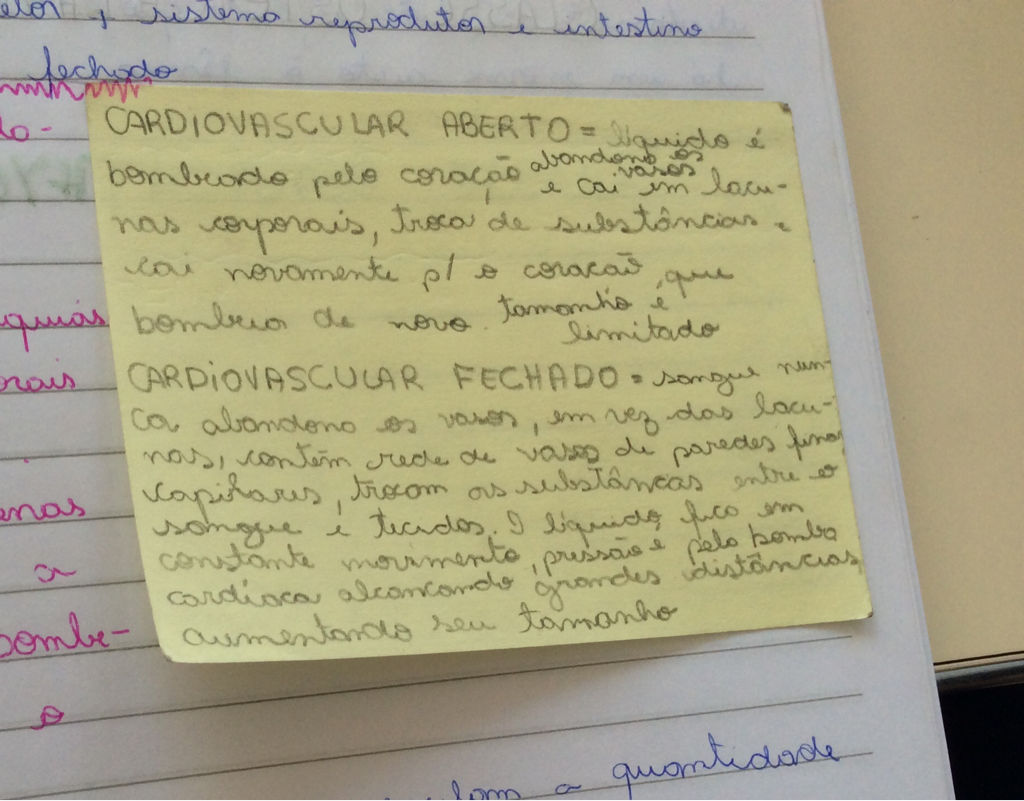 , sistema reprodutor e intestino
fechado
CARDIOVASCULAR ABERTO = líquido é
bombeado pelo coração abandona os vasos e cai em lacu-
nas corporais, troca de substâncias e
cai novamente p/ o coração, que
bombeia de novo. tamanho é
limitado
CARDIOVASCULAR FECHADO = sangue nun-
ca abandona os vasos, em vez das lacu-
nas, contém rede de vasos de paredes finas,
capilares, trocam as substâncias entre o
sangue e tecidos. O líquido fica em
constante movimento, pressão é pela bomba
cardíaca alcançando grandes distâncias,
aumentando seu tamanho
orais
enas
a
bombe-
o
a quantidade